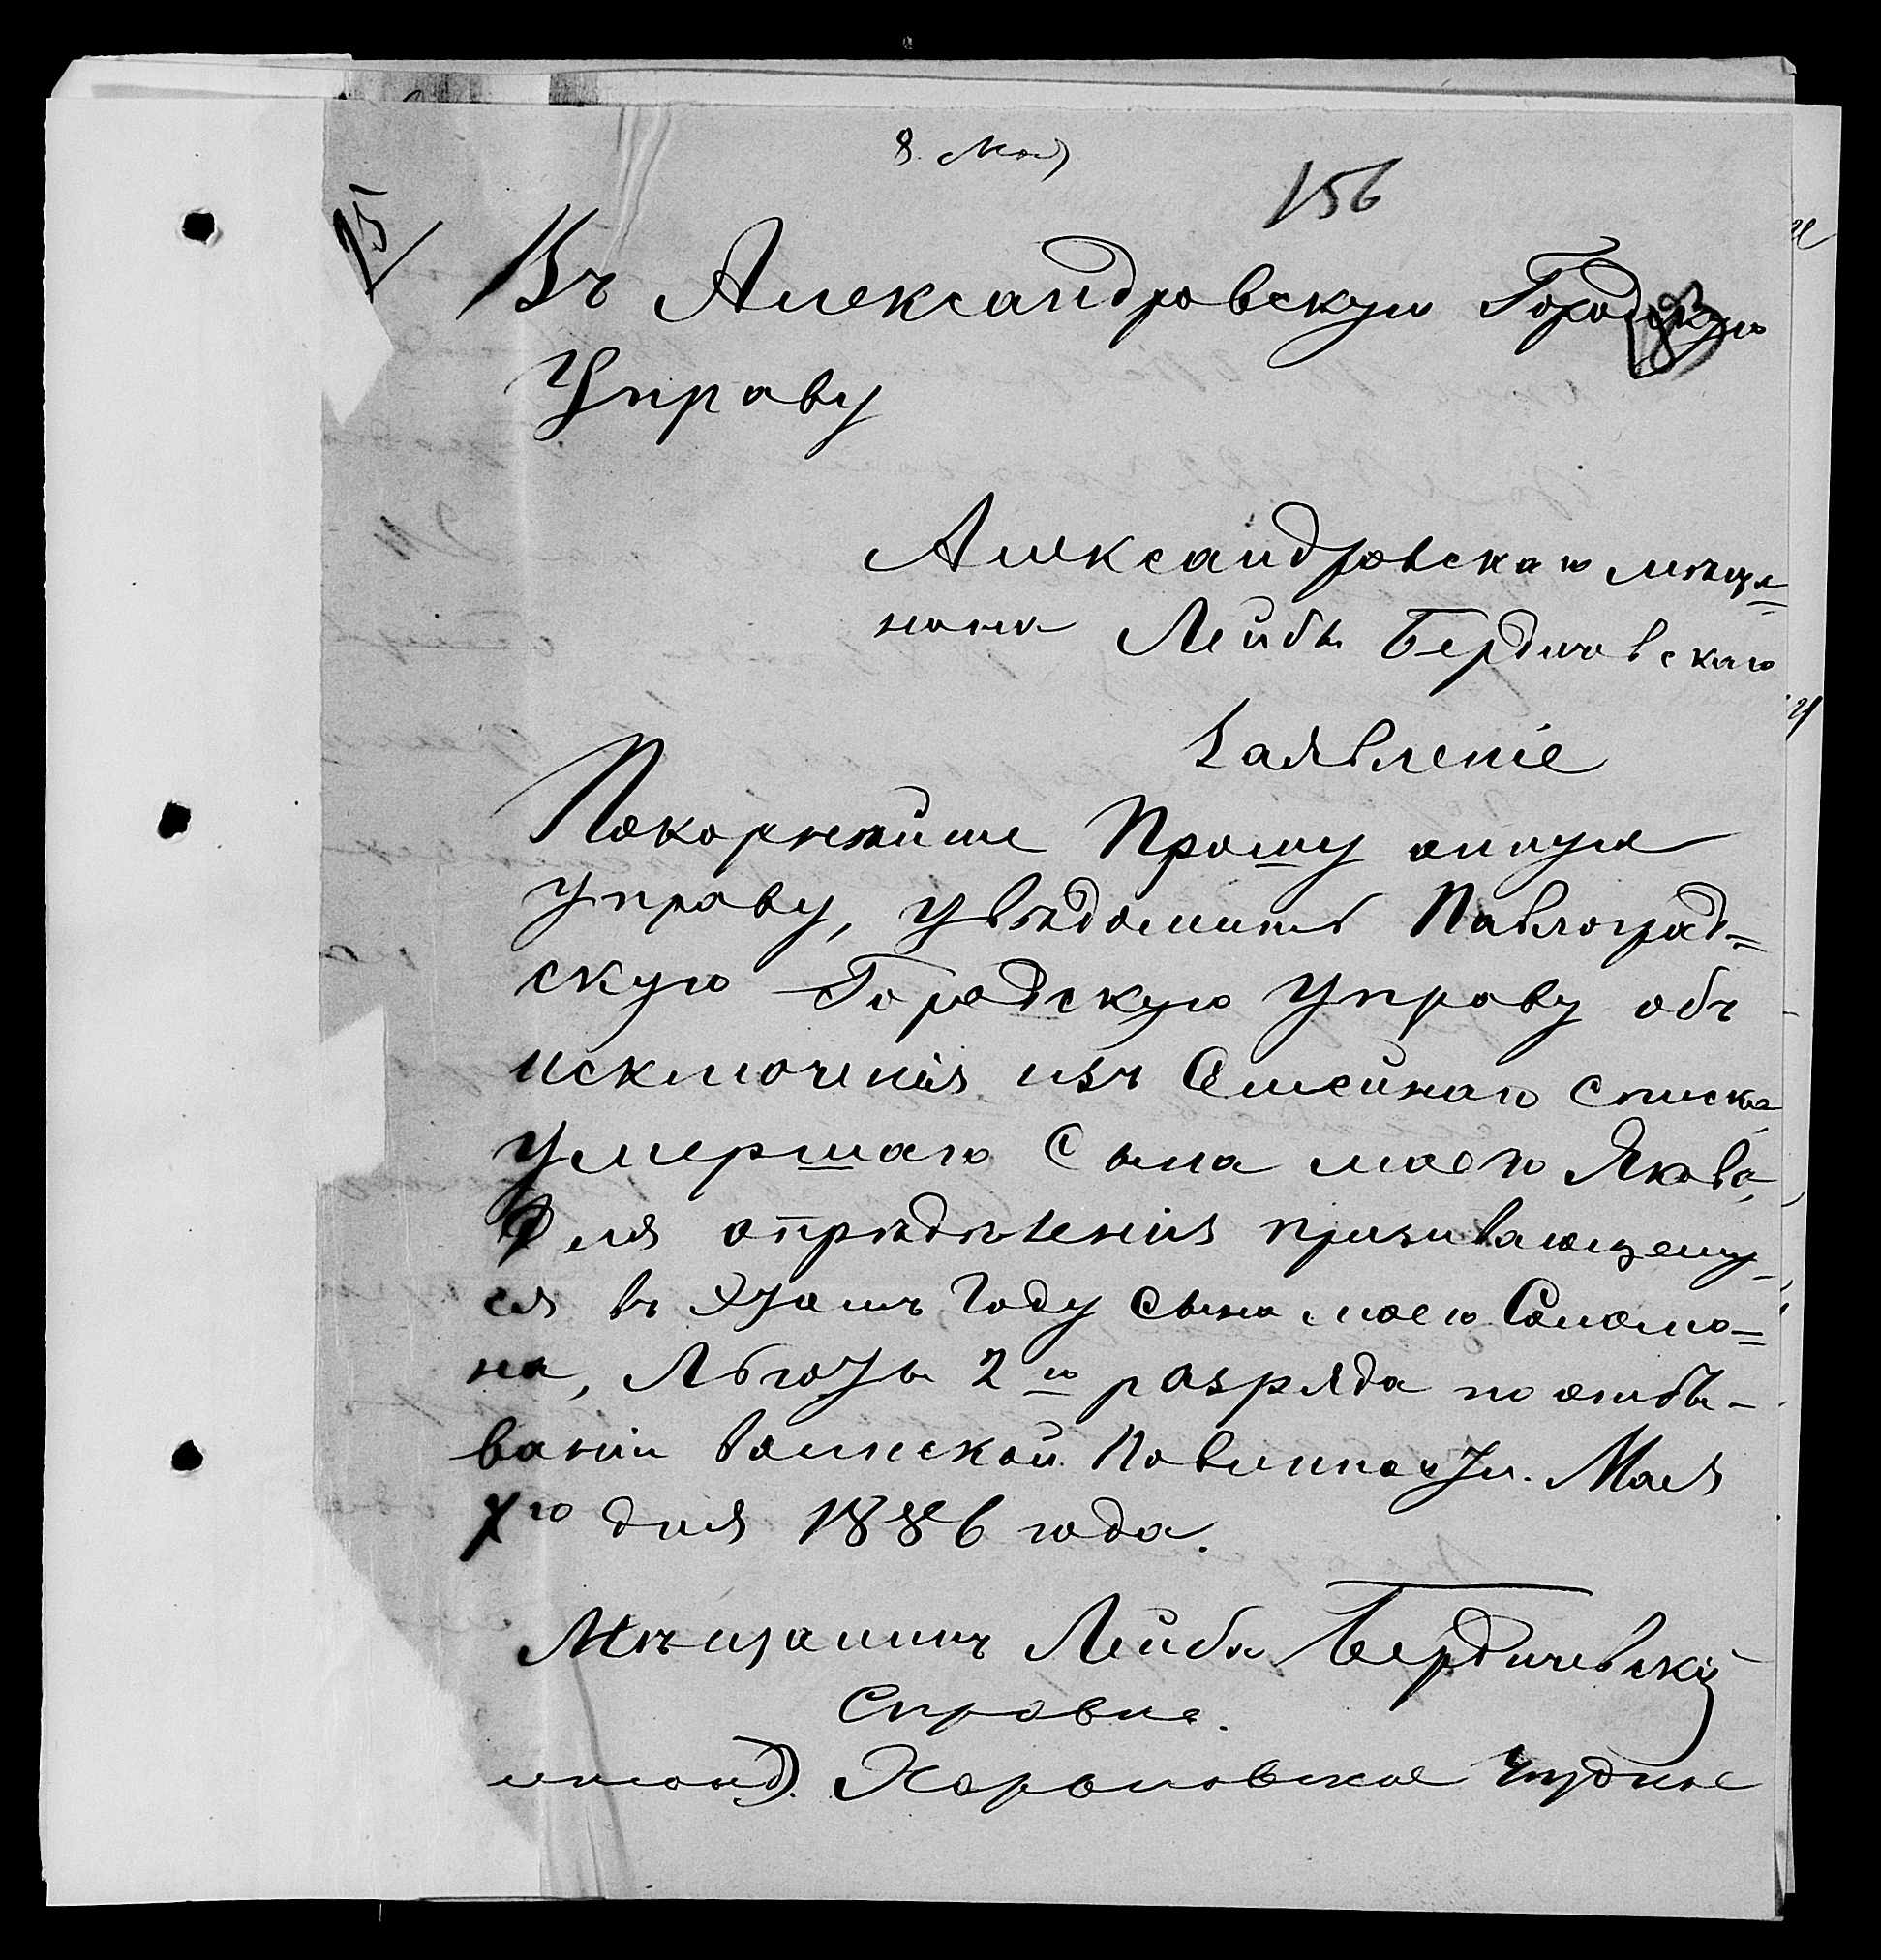 8. Мая
156
15
Въ Александровскую Городскую
183
Управу
Александровскаго мѣща=
нина Лейбы Бердичовскаго
Заявленіе
Покорнейше Прошу оную
Управу, увѣдомить Павлоград=
скую Городскую Управу объ
исключенія изъ Семейнаго списка
умершаго Сына моего Якова,
Для опрѣдѣленія призивающему-
ся въ этомъ Году Сына моего Соломо=
на, Льготы 2го разряда по отбы-
ваніи воинской Повинности. Мая
7го дня 1886 года.
Мѣщанинъ Лейба Бердичевскій
Справка.